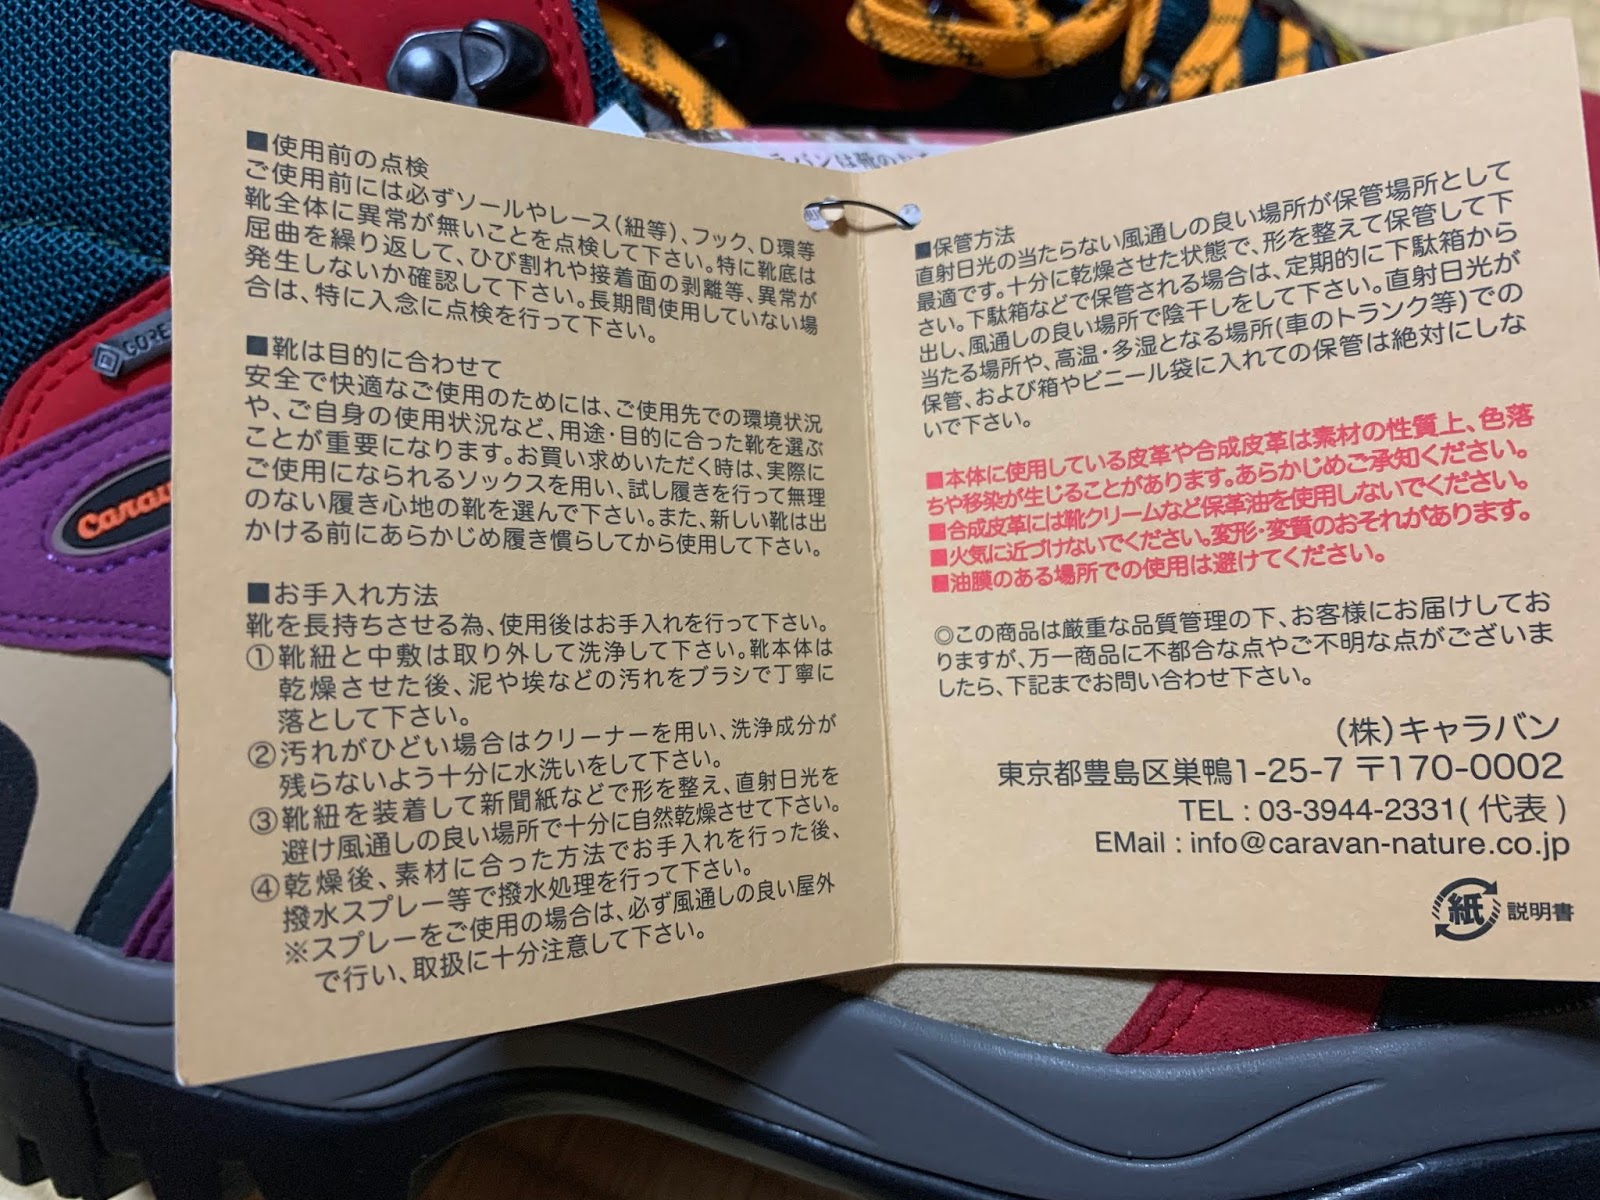 ■使用前の点検
ご使用前には必ずソールやレース(紐等)、フック、D環等
靴全体に異常が無いことを点検して下さい。特に靴底は
屈曲を繰り返して、ひび割れや接着面の剥離等、異常が
発生しないか確認して下さい。長期間使用していない場
合は、特に入念に点検を行って下さい。
■靴は目的に合わせて
安全で快適なご使用のためには、ご使用先での環境状況
や、ご自身の使用状況など、用途・目的に合った靴を選ぶ
ことが重要になります。お買い求めいただく時は、実際に
ご使用になられるソックスを用い、試し履きを行って無理
のない履き心地の靴を選んで下さい。また、新しい靴は出
かける前にあらかじめ履き慣らしてから使用して下さい。
■お手入れ方法
靴を長持ちさせる為、使用後はお手入れを行って下さい。
①靴紐と中敷は取り外して洗浄して下さい。靴本体は
乾燥させた後、泥や埃などの汚れをブラシで丁寧に
落として下さい。
②汚れがひどい場合はクリーナーを用い、洗浄成分が
残らないよう十分に水洗いをして下さい。
③靴紐を装着して新聞紙などで形を整え、直射日光を
避け風通しの良い場所で十分に自然乾燥させて下さい。
④乾燥後、素材に合った方法でお手入れを行った後、
撥水スプレー等で撥水処理を行って下さい。
※スプレーをご使用の場合は、必ず風通しの良い屋外
で行い、取扱に十分注意して下さい。
■保管方法
直射日光の当たらない風通しの良い場所が保管場所として
最適です。十分に乾燥させた状態で、形を整えて保管して下
さい。下駄箱などで保管される場合は、定期的に下駄箱から
出し、風通しの良い場所で陰干しをして下さい。直射日光が
当たる場所や、高温・多湿となる場所(車のトランク等)での
保管、および箱やビニール袋に入れての保管は絶対にしな
いで下さい。
■本体に使用している皮革や合成皮革は素材の性質上、色落
ちや移染が生じることがあります。あらかじめご承知ください。
■合成皮革には靴クリームなど保革油を使用しないでください。
■火気に近づけないでください。変形・変質のおそれがあります。
■油膜のある場所での使用は避けてください。
◎この商品は厳重な品質管理の下、お客様にお届けしてお
りますが、万一商品に不都合な点やご不明な点がございま
したら、下記までお問い合わせ下さい。
(株)キャラバン
東京都豊島区巣鴨1-25-7 〒170-0002
TEL : 03-3944-2331( 代表 )
EMail : info@caravan-nature.co.jp
紙 説明書
GORE
Carav